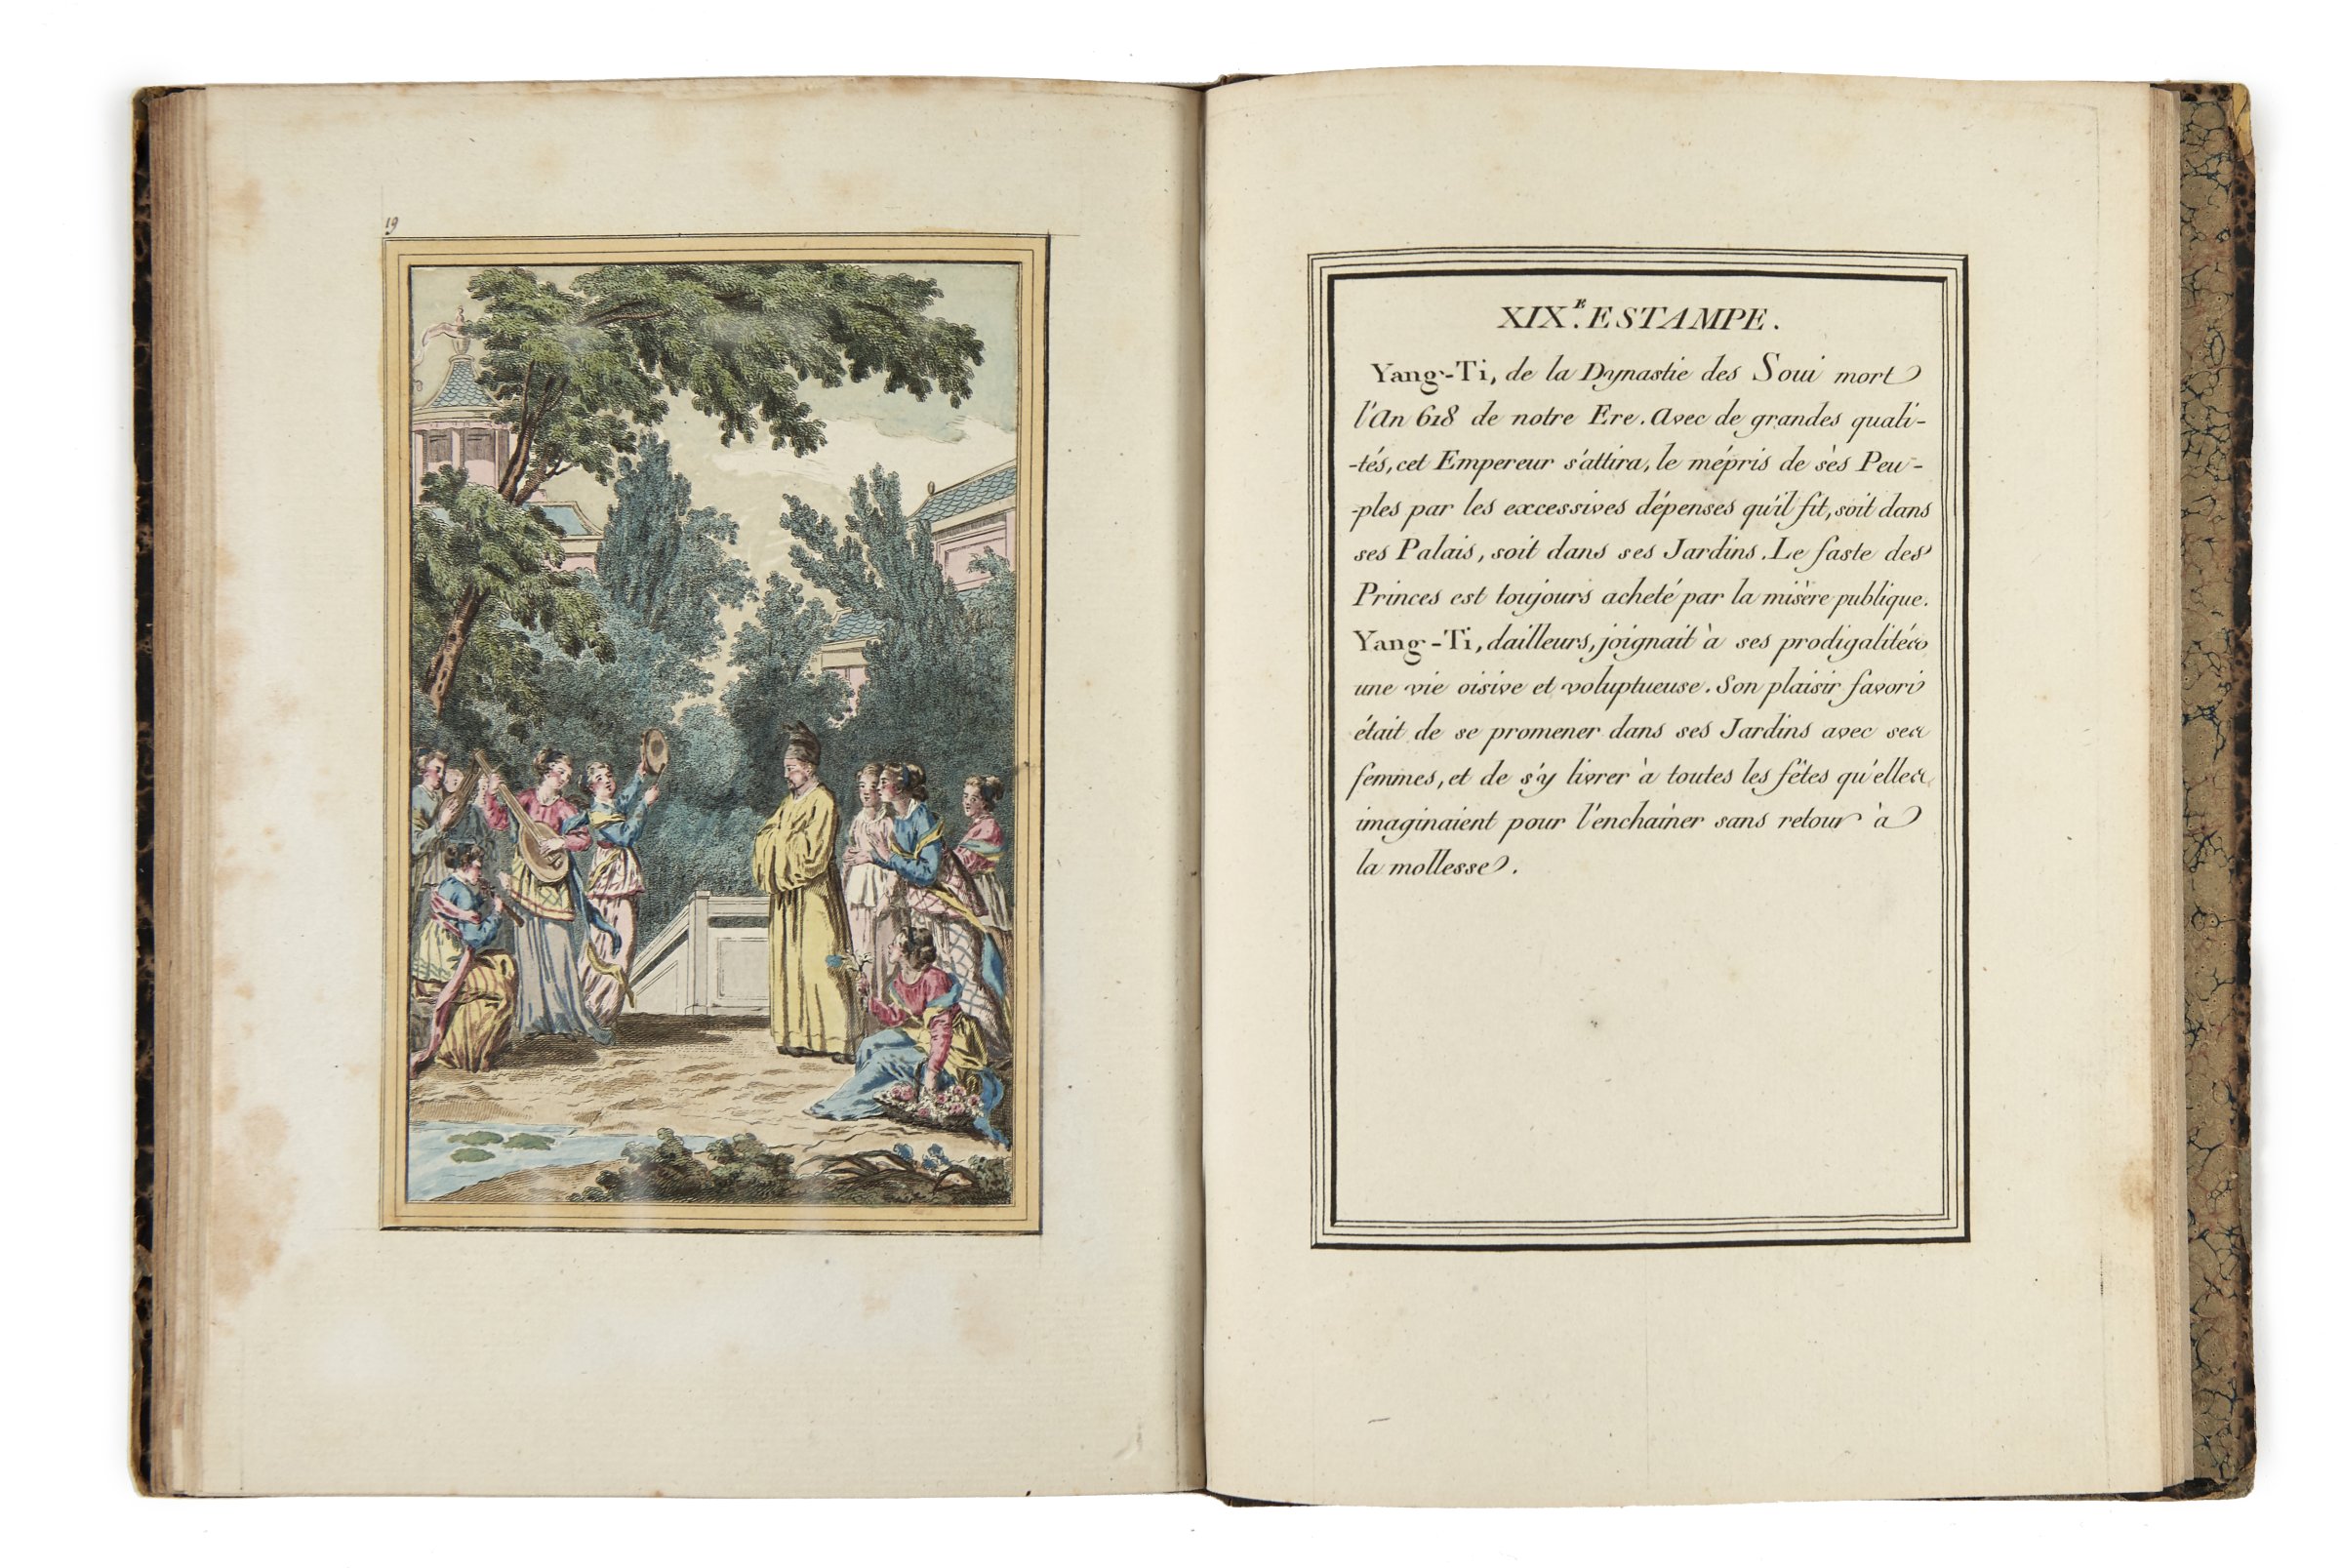 19
XIX.E ESTAMPE.
Yang-Ti, de la Dynastie des Soui mort
l'An 618 de notre Ere. Avec de grandes quali-
-tés, cet Empereur s'attira, le mépris de sès Peu-
-ples par les excessives dépenses qu'il fit, soit dans
ses Palais, soit dans ses Jardins. Le faste des
Princes est toujours acheté par la misère publique.
Yang-Ti, dailleurs, joignait à ses prodigalités
une vie oisive et voluptueuse. Son plaisir favori
était de se promener dans ses Jardins avec ses
femmes, et de s'y livrer à toutes les fêtes qu'elles
imaginaient pour l'enchaîner sans retour à
la mollesse.